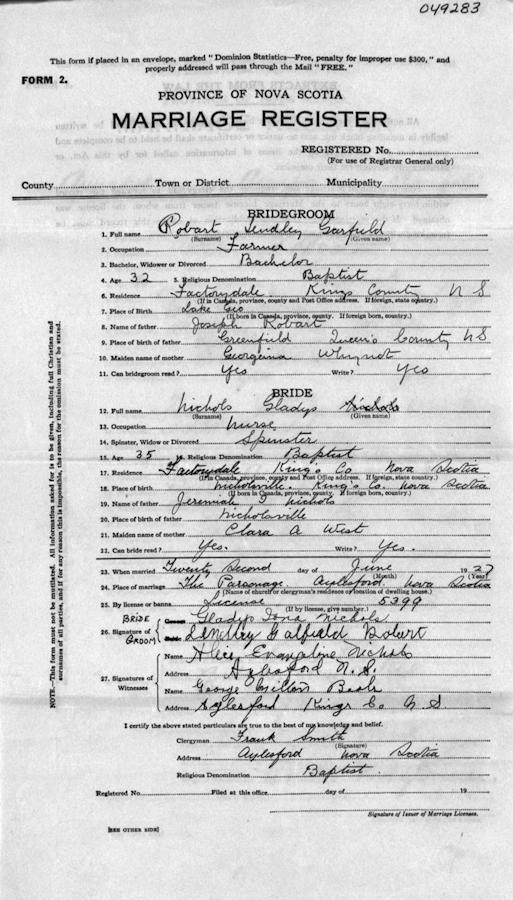 049283
This form if placed in an envelope, marked "Dominion Statistics—Free, penalty for improper use $300," and
properly addressed will pass through the Mail "FREE."
FORM 2.
PROVINCE OF NOVA SCOTIA
MARRIAGE REGISTER
REGISTERED No.
(For use of Registrar General only)
County Town or District Municipality
BRIDEGROOM
1. Full name Robart Lendley Garfield
(Surname) (Given name)
2. Occupation Farmer
3. Bachelor, Widower or Divorced Bachelor
4. Age 32 5. Religious Denomination Baptist
6. Residence Factorydale Kings County N S
(If in Canada, province, county and Post Office address. If foreign, state country.)
7. Place of Birth Lake Geo
(If born in Canada, province, county. If foreign born, country.)
8. Name of father Joseph Robart
9. Place of birth of father Greenfield Queen's County NS
10. Maiden name of mother Georgeina Whynot
11. Can bridegroom read? Yes Write? Yes
BRIDE
12. Full name Nichols Gladys
(Surname) (Given name)
13. Occupation Nurse
14. Spinster, Widow or Divorced Spinster
15. Age 35 16. Religious Denomination Baptist
17. Residence Factorydale King's Co Nova Scotia
(If in Canada, province, county and Post Office address. If foreign, state country.)
18. Place of birth Nicholsville King's Co. Nova Scotia
(If born in Canada, province, county. If foreign born, country.)
19. Name of father Jeremiah I Nichols
20. Place of birth of father Nicholsville
21. Maiden name of mother Clara A West
22. Can bride read? Yes. Write? Yes.
23. When married Twenty Second day of June 1927
(Month) (Year)
24. Place of marriage The Parsonage Aylesford Nova Scotia
(Name of church or clergyman's residence or location of dwelling house.)
25. By license or banns License 5399
(If by license, give number.)
BRIDE Groom Gladys Iona Nichols
26. Signature of
GROOM Bride Lendley Galfield Robert
Name Alice Evangeline Nichols
Address Aylesford N.S.
27. Signatures of
Witnesses
Name George
Address Aylesford Kings Co N S
I certify the above stated particulars are true to the best of my knowledge and belief.
Clergyman Frank Smith
(Signature)
Address Aylesford Nova Scotia
Religious Denomination Baptist
Registered No. Filed at this office day of 19
Signature of Issuer of Marriage Licenses.
[SEE OTHER SIDE]
NOTE.—This form must not be mutilated. All information asked for is to be given, including full Christian and
surnames of all parties, and if for any reason this is impossible, the reason for the omission must be stated.